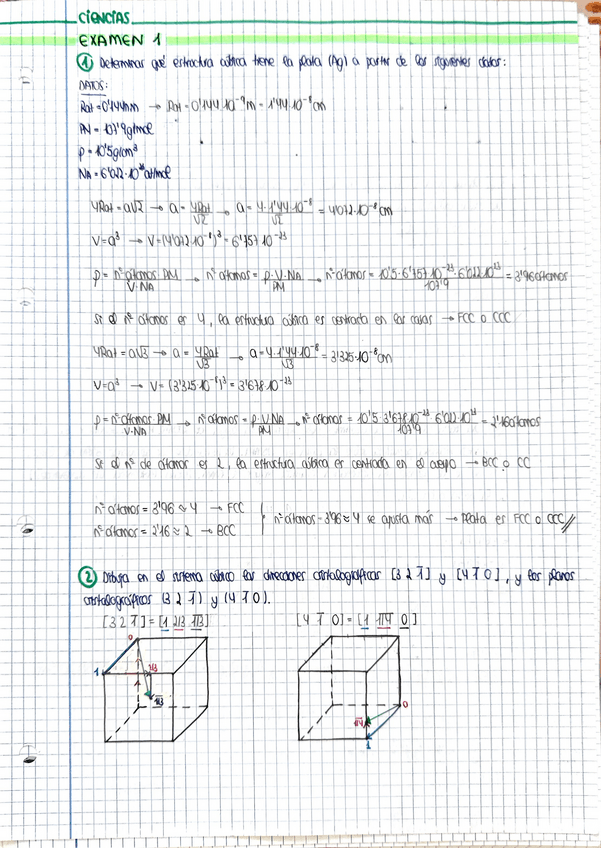 CIENCIAS
EXAMEN 1
1 Determinar qué estructura cúbica tiene la plata (Ag) a partir de los siguientes datos:
DATOS:
Rat = 0'144nm → Rat = 0'144·10⁻⁹m = 1'44·10⁻⁸cm
PM = 107'9g/mol
ρ = 10'5g/cm³
NA = 6'022·10²³at/mol
4Rat = a√2 → a = 4Rat/√2 → a = 4·1'44·10⁻⁸/√2 = 4'072·10⁻⁸cm
V = a³ → V = (4'072·10⁻⁸)³ = 6'757·10⁻²³
ρ = nº átomos·PM/V·NA → nº átomos = ρ·V·NA/PM → nº átomos = 10'5·6'757·10⁻²³·6'022·10²³/107'9 = 3'96átomos
Si el nº átomos es 4, la estructura cúbica es centrada en las caras → FCC o CCC
4Rat = a√3 → a = 4Rat/√3 → a = 4·1'44·10⁻⁸/√3 = 3'325·10⁻⁸cm
V = a³ → V = (3'325·10⁻⁸)³ = 3'678·10⁻²³
ρ = nº átomos·PM/V·NA → nº átomos = ρ·V·NA/PM → nº átomos = 10'5·3'678·10⁻²³·6'022·10²³/107'9 = 2'16átomos
Si el nº de átomos es 2, la estructura cúbica es centrada en el cuerpo → BCC o CC
nº átomos = 3'96 ≈ 4 → FCC
nº átomos = 2'16 ≈ 2 → BCC
nº átomos = 3'96 ≈ 4 se ajusta más → Plata es FCC o CCC//
2 Dibuja en el sistema cúbico las direcciones cristalográficas [3 2 1̅] y [4 1̅ 0], y los planos
cristalográficos (3 2 1̅) y (4 1̅ 0).
[3 2 1̅] = [1 2/3 1̅/3]
[4 1̅ 0] = [1 1̅/4 0]
0
1
2/3
1̅/3
0
1̅/4
1